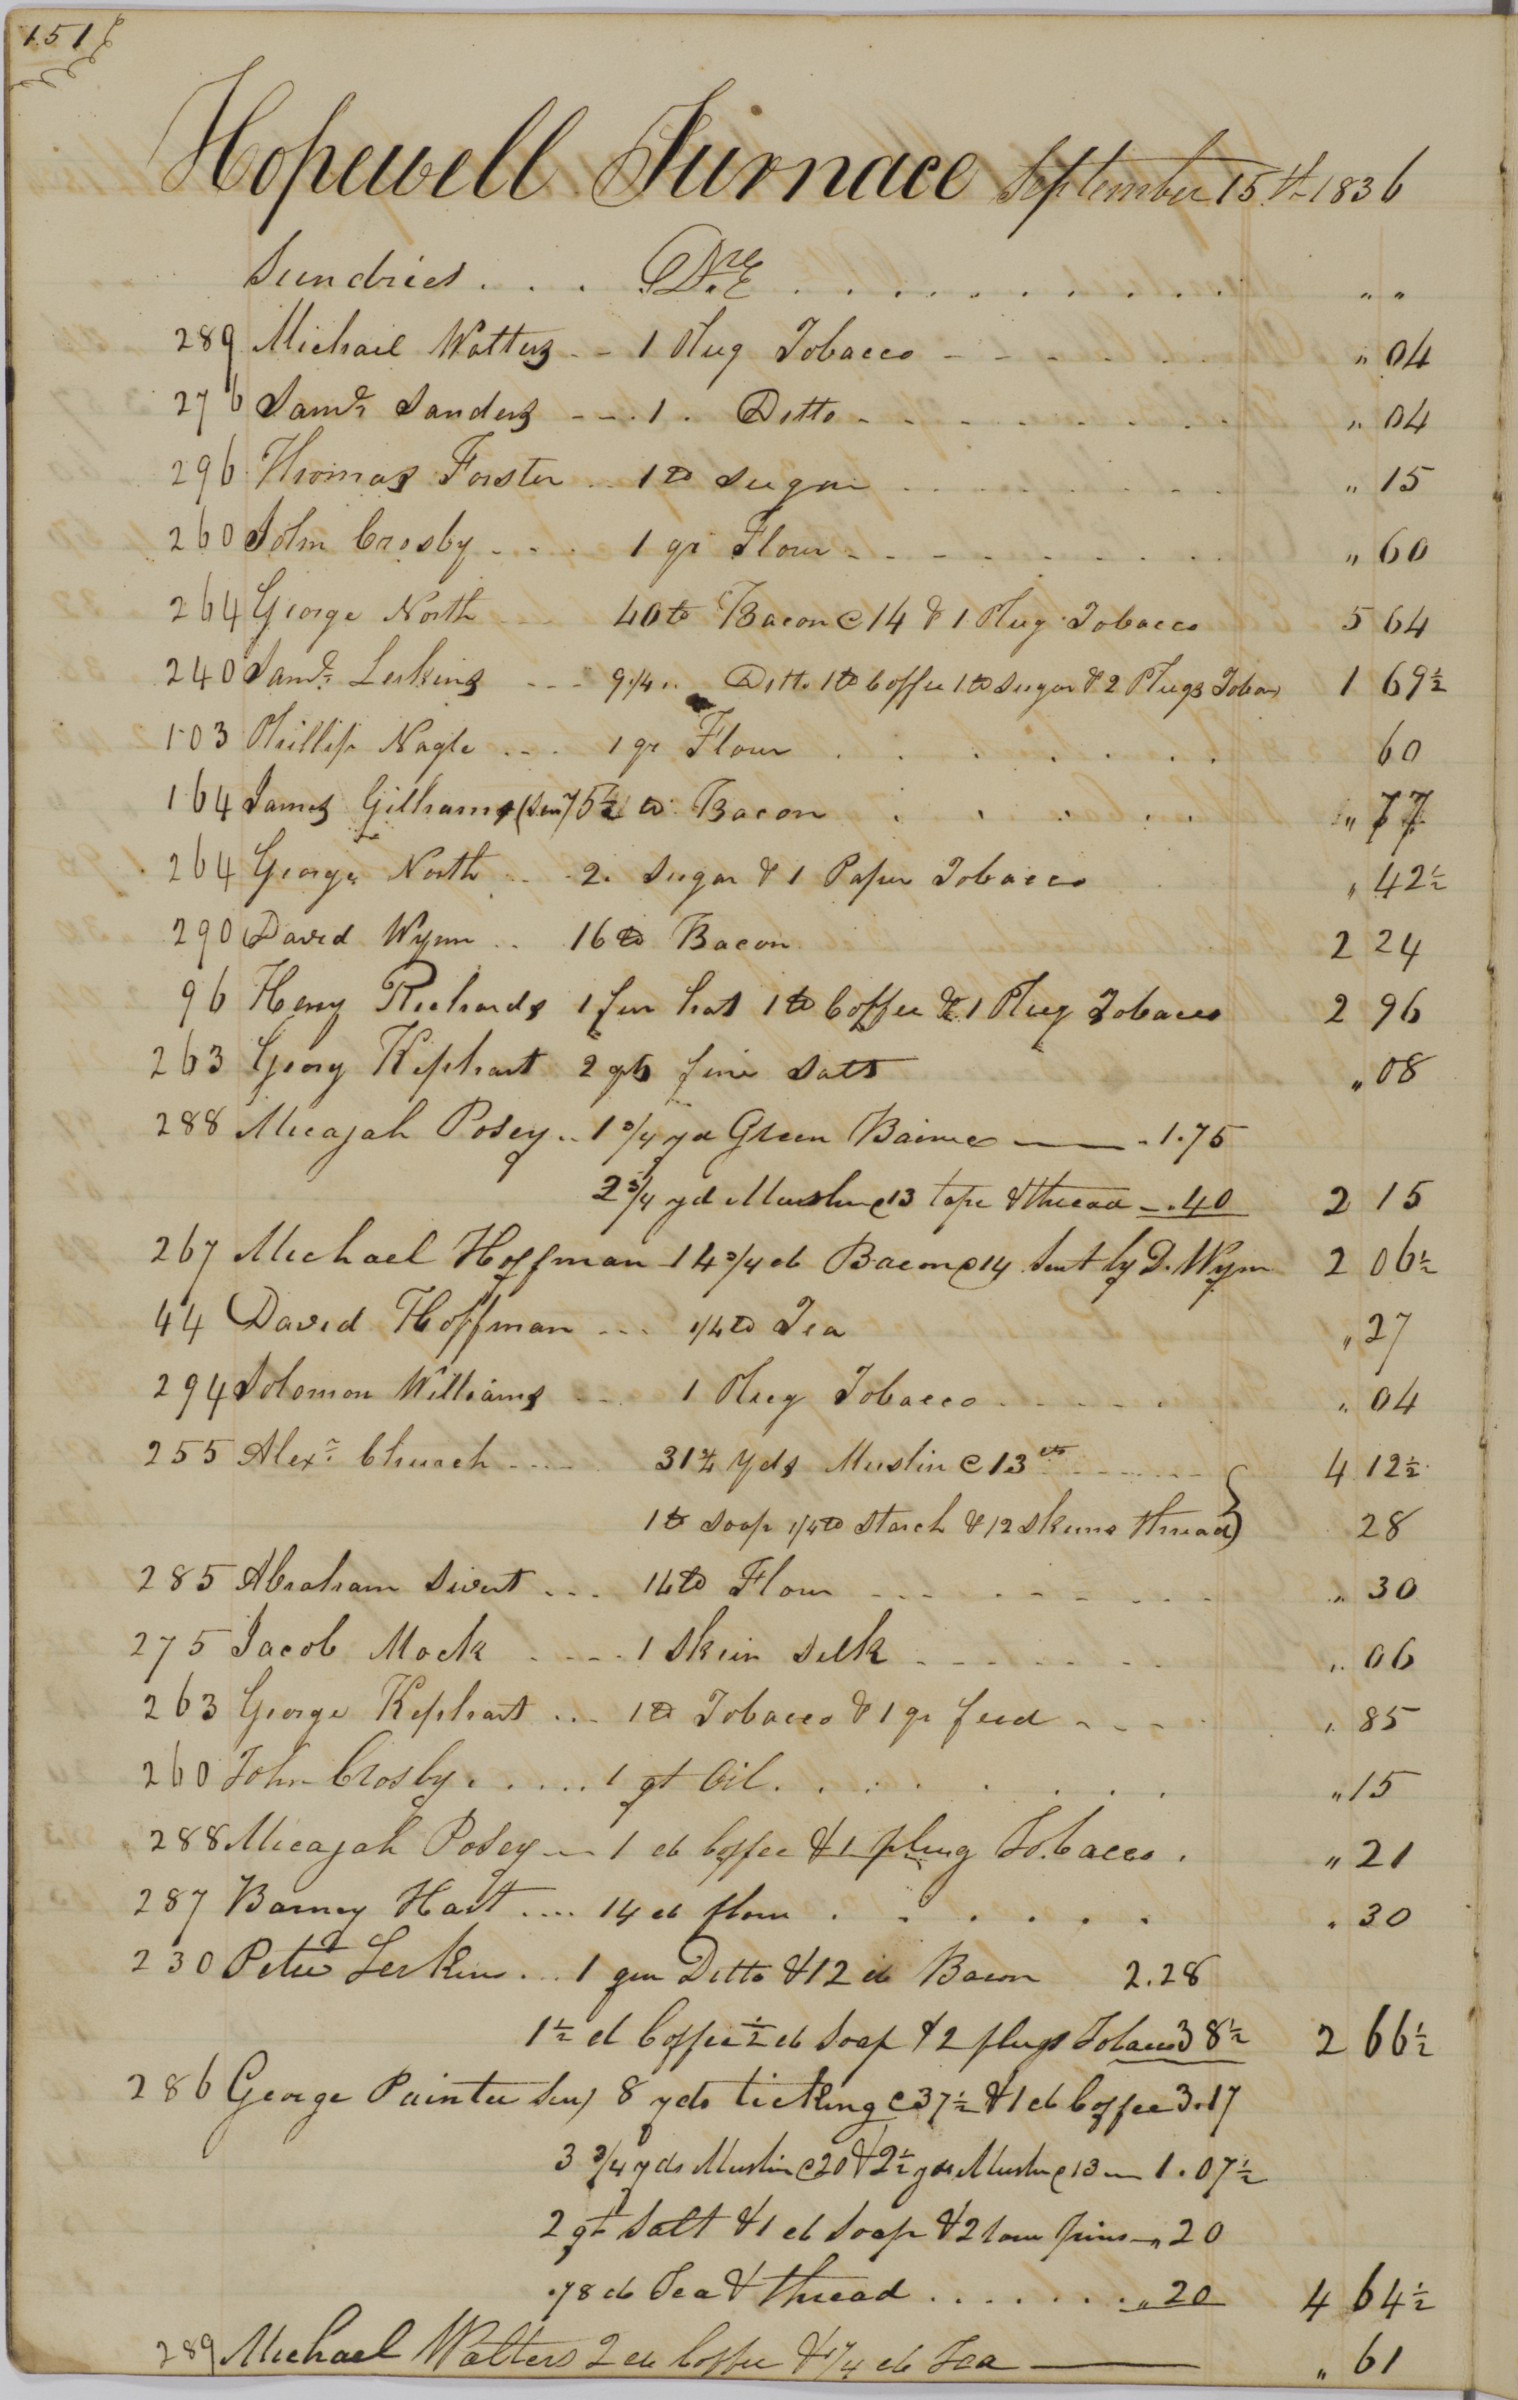 151
Hopewell Furnace September 15th 1836
Sundries . . . Drs . . . . . . . . . . " "
289 Michael Watters -- 1 Plug Tobacco - - - - " 04
276 Saml Sanders --- 1 . Ditto - - - - " 04
296 Thomas Forster .. 1 lb Sugar . . . . " 15
260 John Crosby - - - 1 qr Flour - - - - " 60
264 George North --- 40 lb Bacon @ 14 & 1 Plug Tobacco 5 64
240 Saml Lerkins --- 9 1/4 " Ditto 1 lb Coffee 1 lb Sugar & 2 Plugs Tobaco 1 69½
103 Phillip Nagle --- 1 qr Flour . . . . . 60
164 James Gilhams (Senr) 5½ lb Bacon . . . . " 77
264 George North .. 2 . Sugar & 1 Paper Tobacco " 42½
290 David Wynn .. 16 lb Bacon 2 24
96 Heny Richards 1 fur hat 1 lb Coffee & 1 Plug Tobacco 2 96
263 Georg Kephart 2 qts fine Salt " 08
288 Micajah Posey .. 1 3/4 yd Green — 1.75
2 3/4 yd Muslin @ 13 tape & thread - .40 2 15
267 Michael Hoffman 14 3/4 lb Bacon @ 14 Sent by D. Wynn 2 06½
44 David Hoffman --- 1/4 lb Tea " 27
294 Solomon Williams --- 1 Plug Tobacco - - - - " 04
255 Alexr Church ---- 31 3/4 Yds Muslin @ 13 cts - - - - 4 12½
1 lb Soap 1/4 lb Starch & 12 Skeins thread } 28
285 Abraham Sivert --- 14 lb Flour - - - - " 30
275 Jacob Mock ---- 1 Skein Silk - - - - " 06
263 George Kephart ... 1 lb Tobacco & 1 qr feed - - - " 85
260 John Crosby ..... 1 qt Oil . . . . . " 15
288 Micajah Posey -- 1 lb Coffee & 1 plug Tobacco . " 21
287 Barney Hart .... 14 lb flour . . . . . " 30
230 Peter Lerkins ... 1 qur Ditto & 12 lb Bacon 2.28
1½ lb Coffee ½ lb Soap & 2 plugs Tobacco 38½ 2 66½
286 George Painter Senr 8 yds ticking @ 37½ & 1 lb Coffee 3.17
3 3/4 yds Muslin @ 20 & 2½ yds Muslin @ 13 — 1.07½
2 qt Salt & 1 lb Soap & 2 row pins - " 20
1/8 lb Tea & thread . . . . . . " 20 4 64½
289 Michael Watters 2 lb Coffee & 1/4 lb Tea — " 61